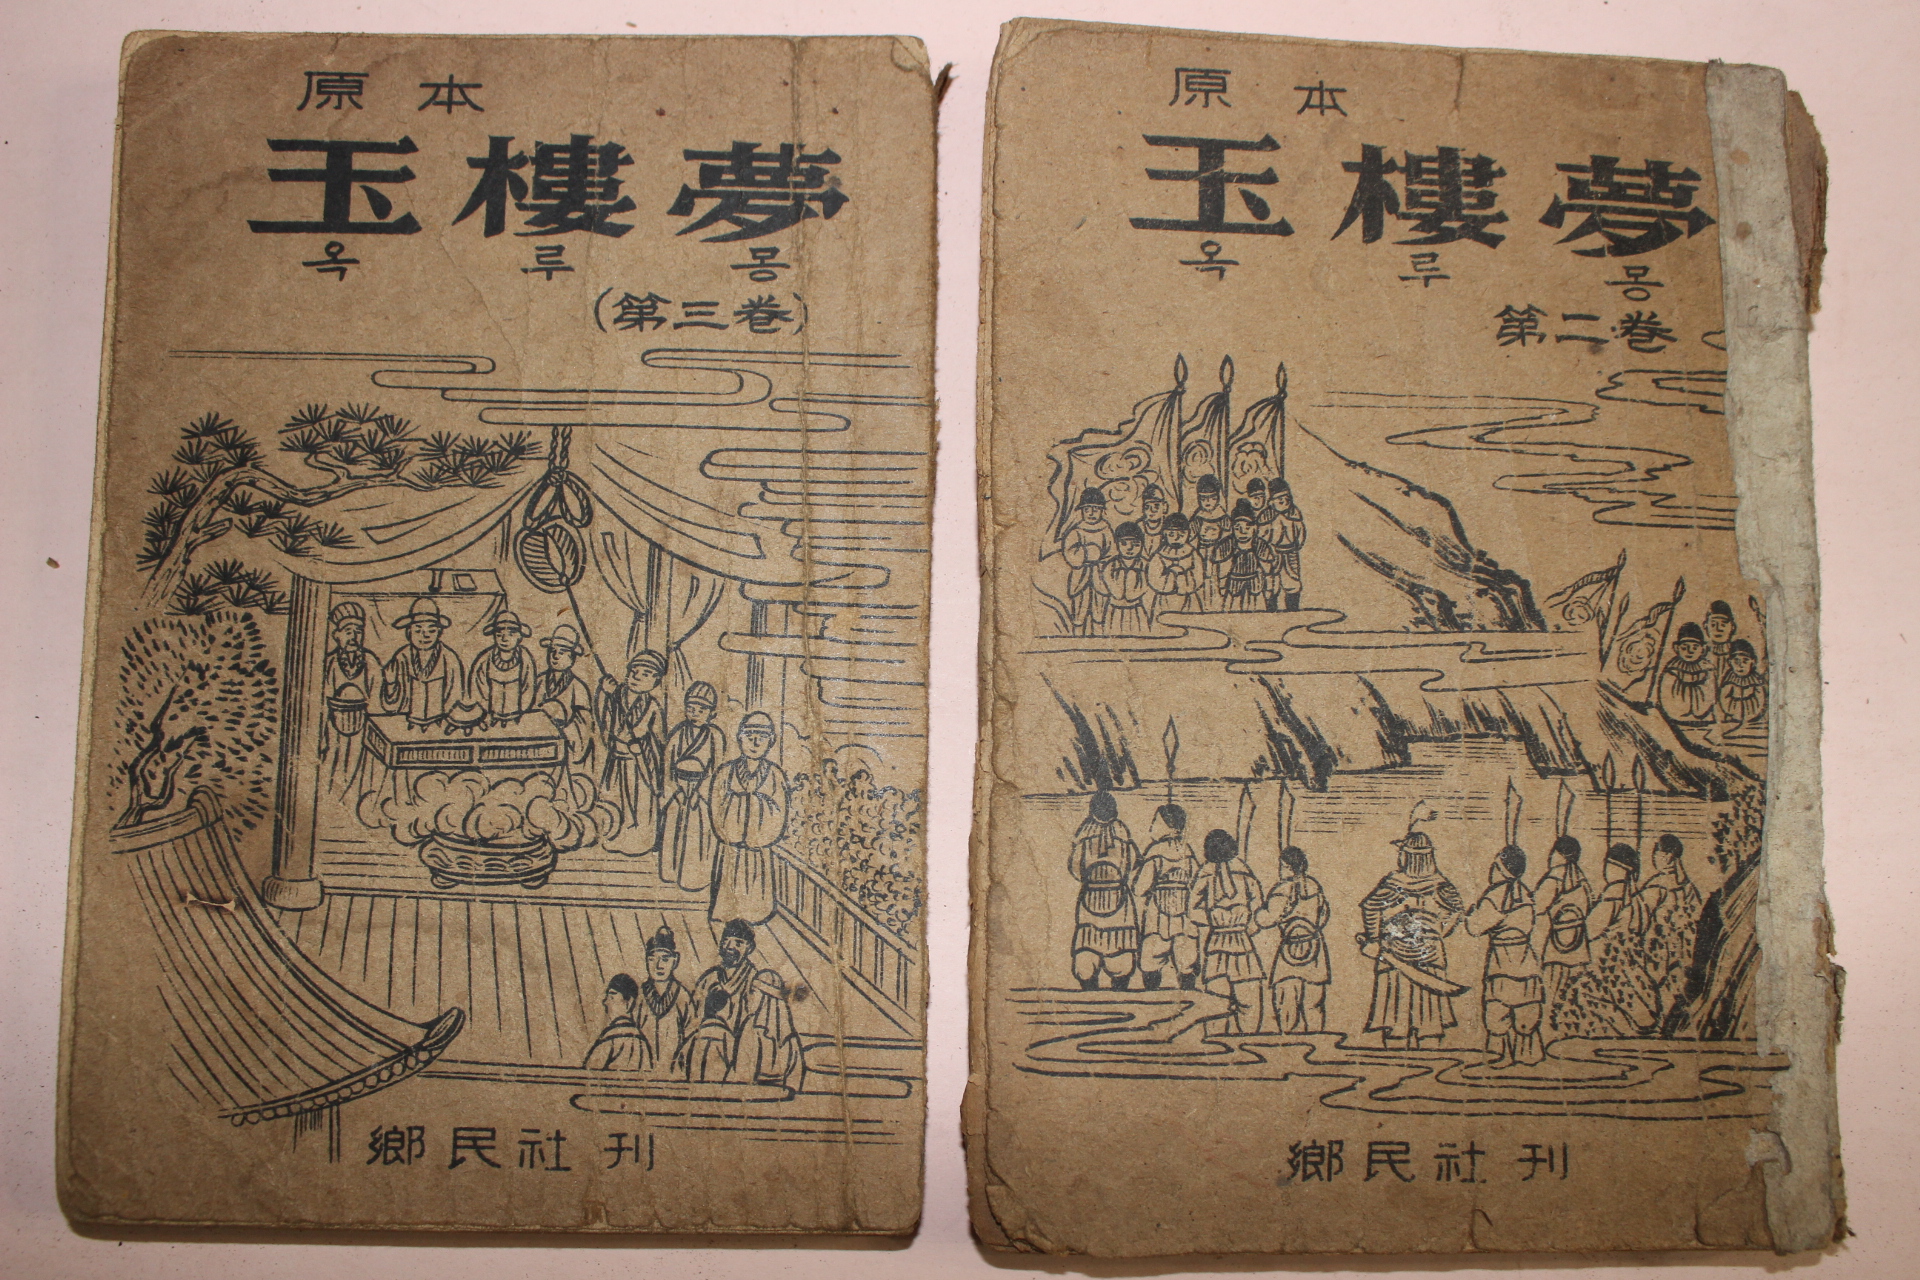 原本
玉樓夢
옥루몽
(第三巻)
鄕民社刊
原本
玉樓夢
옥루몽
第二巻
鄕民社刊